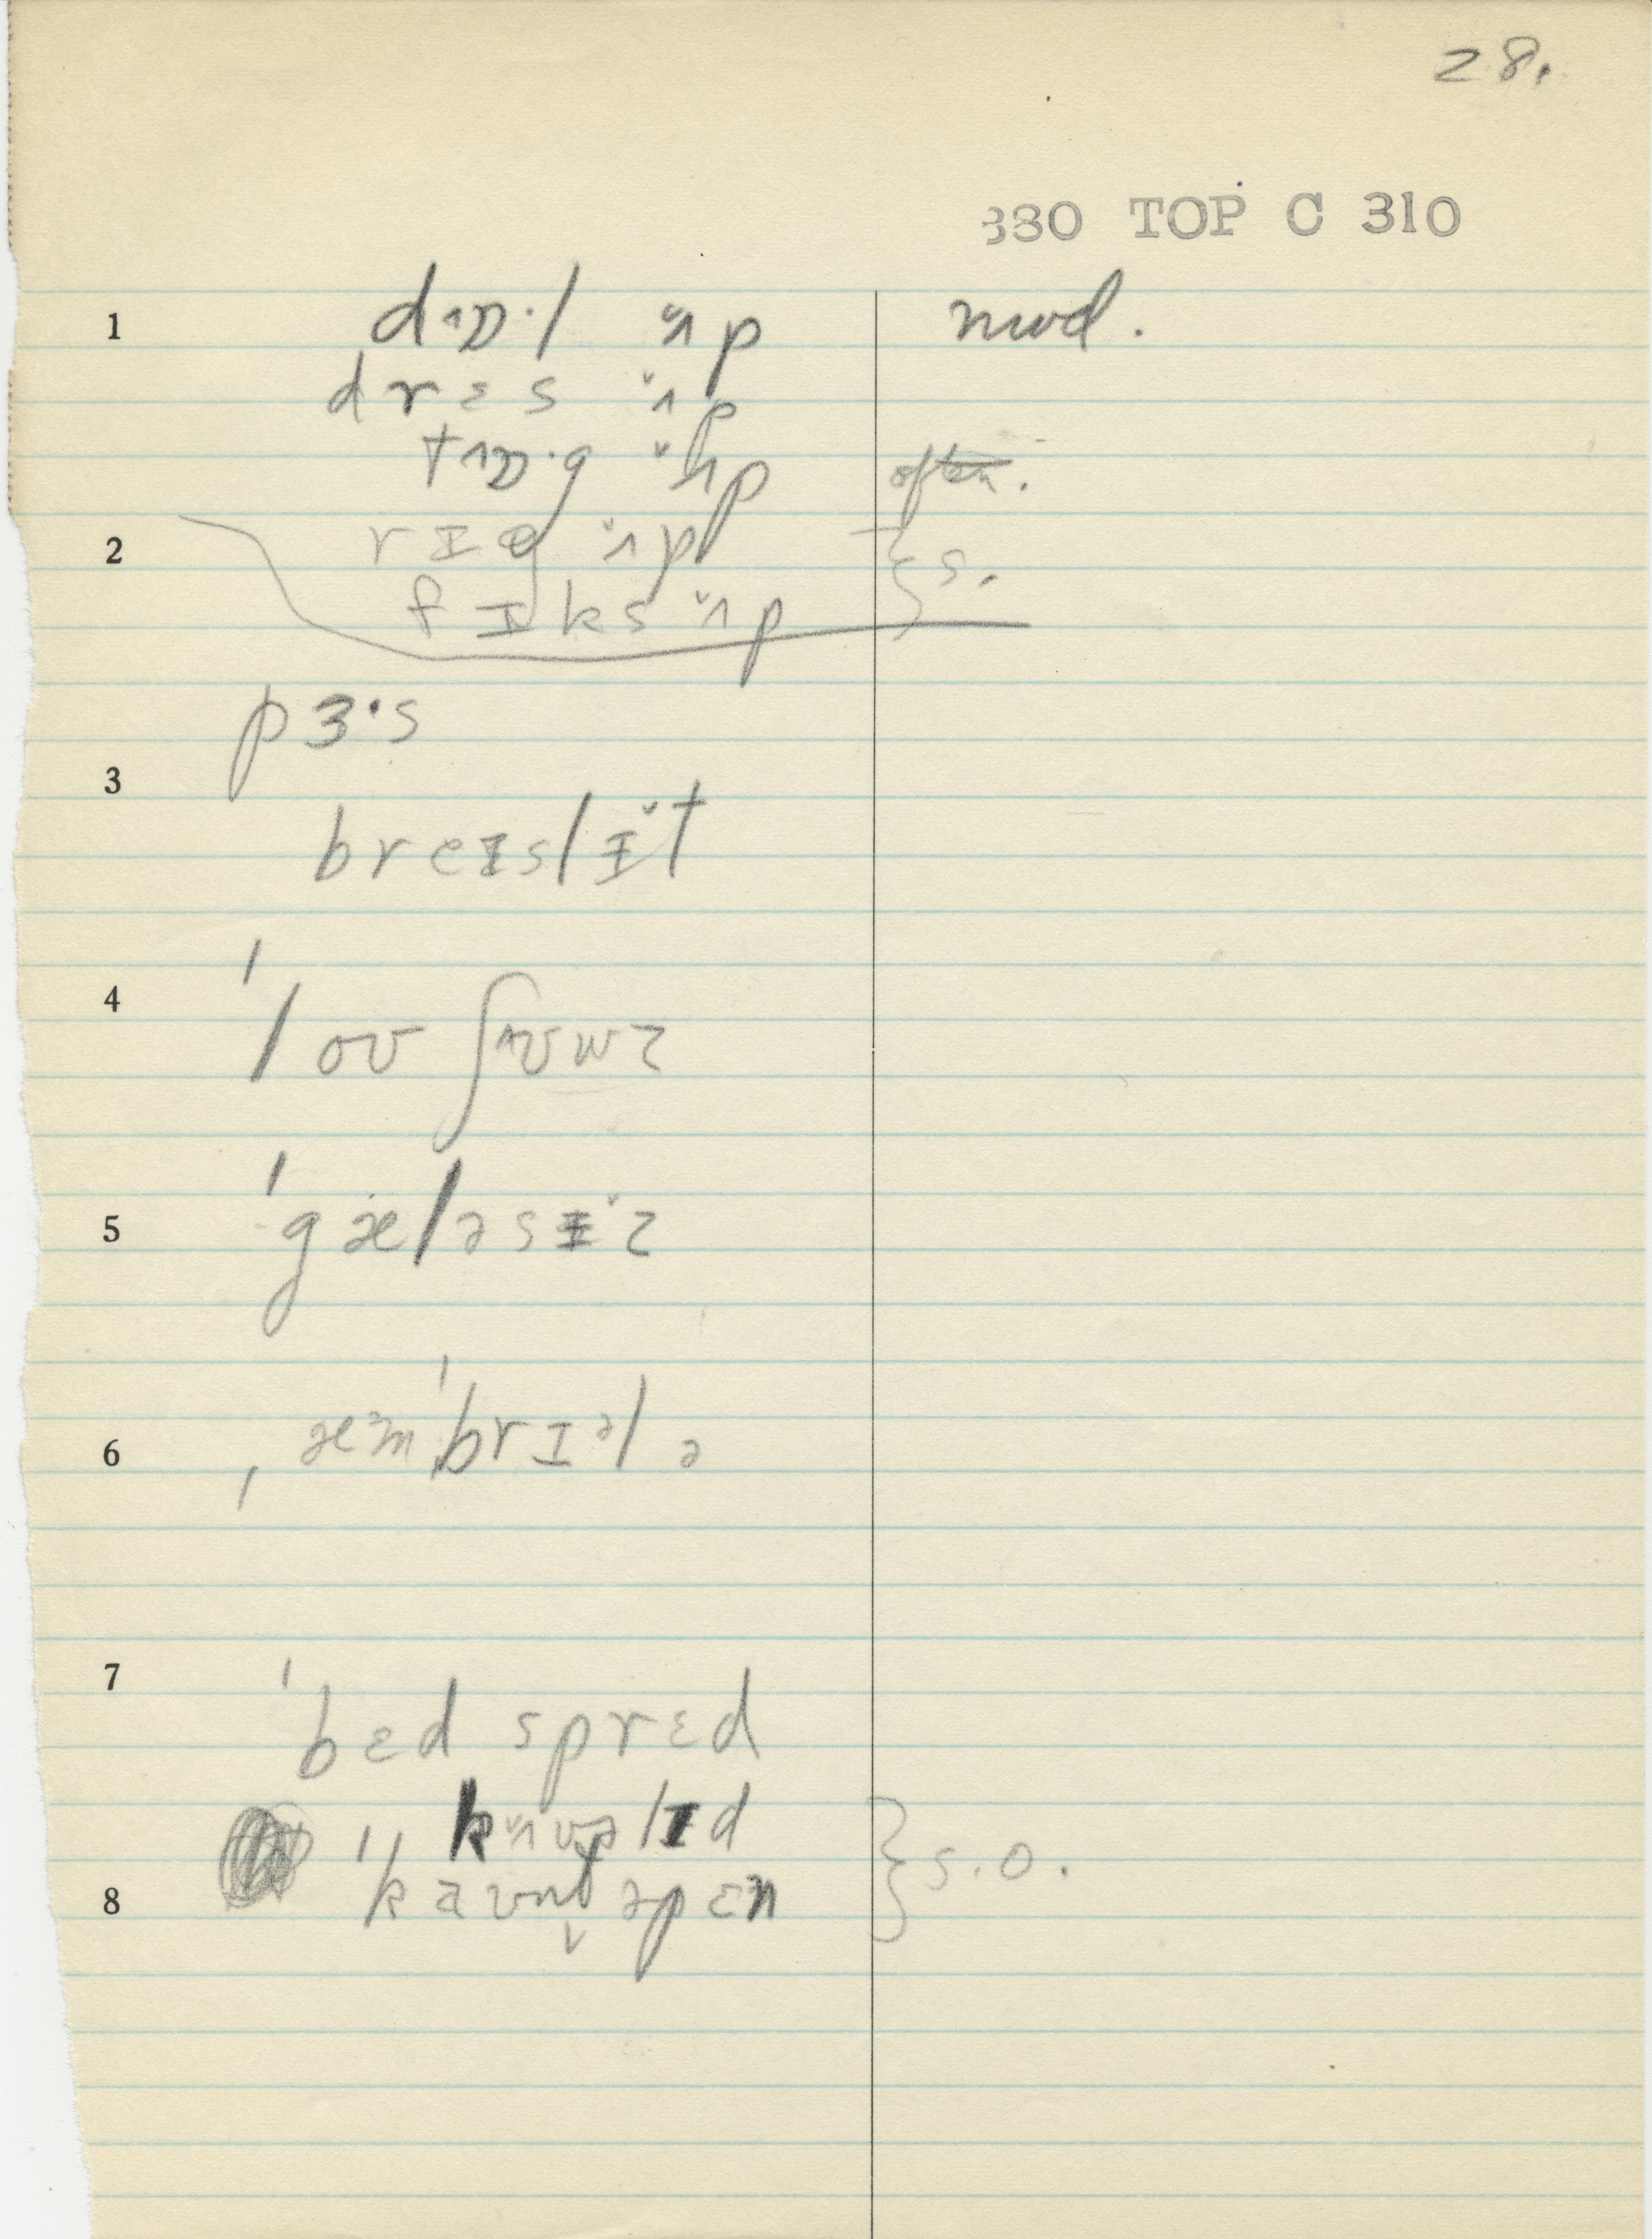 28.
330 TOP C 310
1 dɒ·l ʌ̆p mod.
drɛs ʌ̆p
tɒ·g ʌ̆p often.
2 rɪg ʌ̆p } s.
fɪks ʌ̆p
pɜ·s
3
breɪslɪ̆t
4 ˈloʊ ʃuz
5 ˈgæləsɪ̆z
6 ˌæmˈbrɪᵊlə
7
ˈbɛd sprɛd
} s.o.
8 ˈkaʊntəpɛn